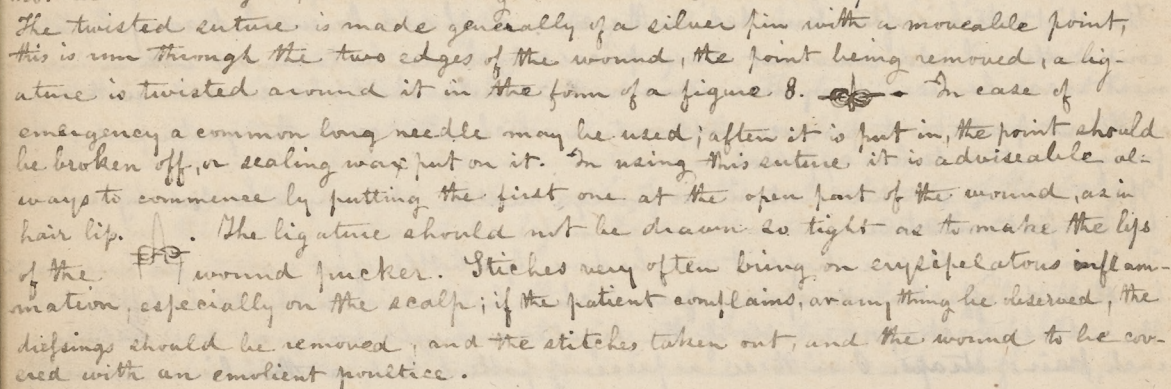 The twisted suture is made generally of a silver pin with a moveable point,
this is run through the two edges of the wound, the point being removed, a lig-
ature is twisted around it in the form of a figure 8. In case of
emergency a common long needle may be used; after it is put in, the point should
be broken off, or sealing wax put on it. In using this suture it is adviseable al-
ways to commence by putting the first one at the open part of the wound, as in
hair lip. The ligature should not be drawn so tight as to make the lips
of the wound pucker. Stiches very often bring on erysipelatous inflam-
mation, especially on the scalp; if the patient complains, or any thing be observed, the
dressings should be removed, and the stitches taken out, and the wound to be cov-
ered with an emolient poultice.